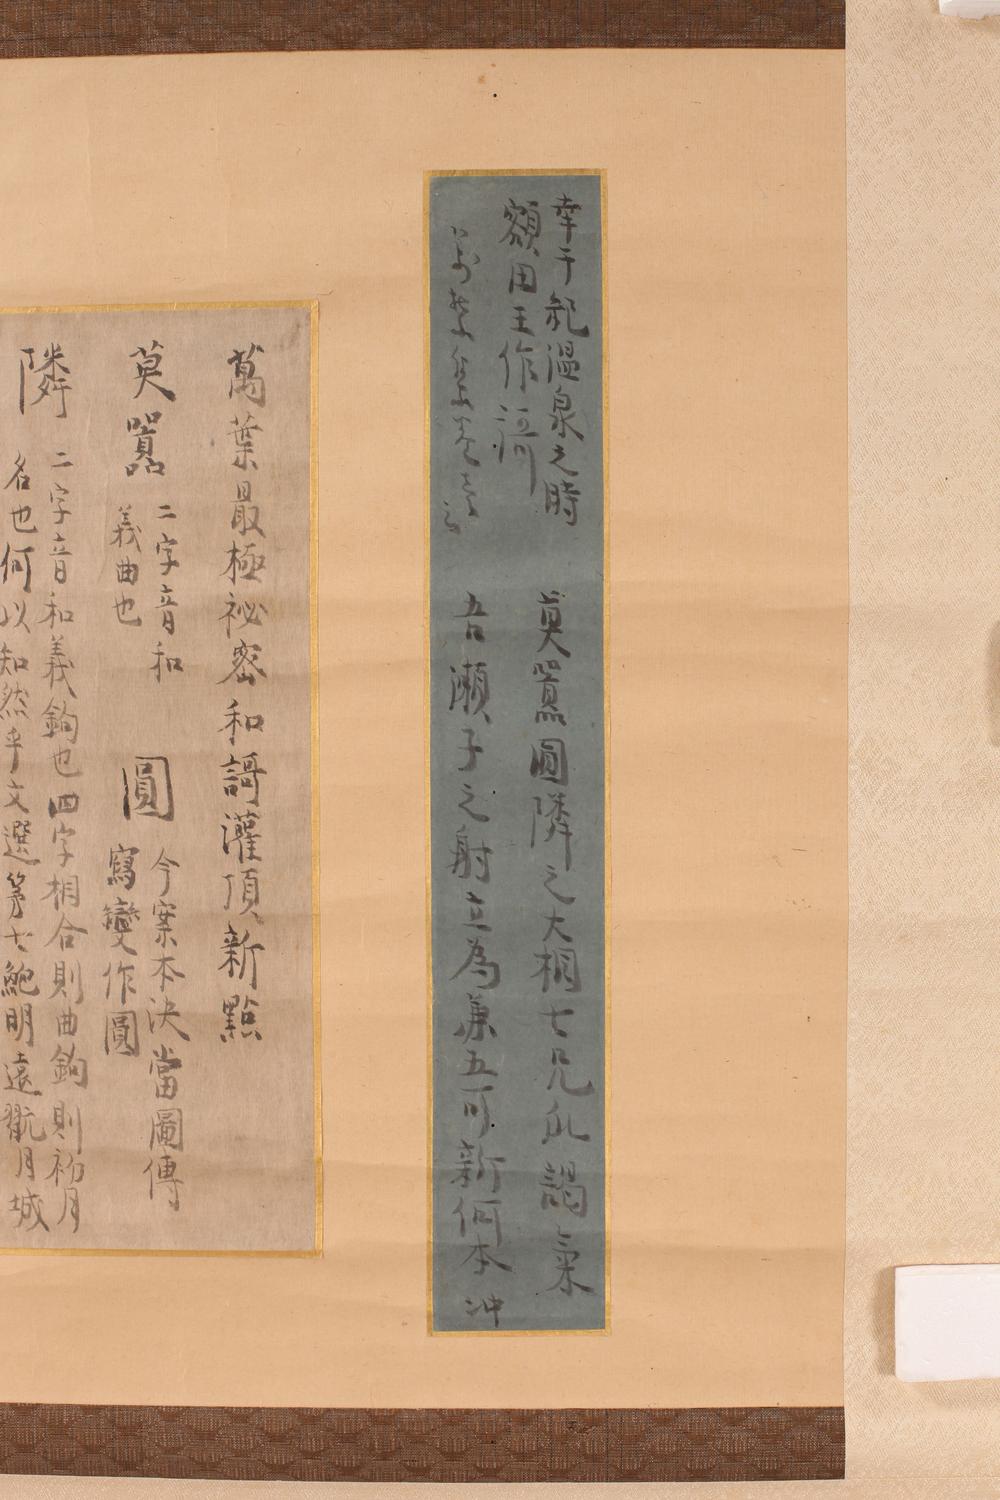 幸于紀温泉之時
額田王作謌
萬葉集巻㐧一
莫囂圓隣之大相七兄爪謁氣
吾瀬子之射立為兼五可新何本
冲
萬葉最極祕密和謌灌頂新點
莫囂
二字音和
義曲也
圓
今案本決當圖傳
寫變作圓
隣
二字音和義鉤也四字相合則曲鉤則初月
名也何以知然乎文選第七鮑明遠翫月城